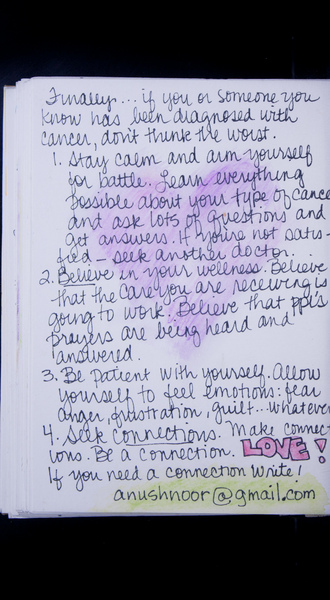 Finally... if you or someone you
know has been diagnosed with
cancer, don't think the worst.
1. Stay calm and arm yourself
for battle. Learn everything
possible about your type of cance
and ask lots of questions and
get answers. If you're not satis-
fied - seek another doctor.
2. Believe in your wellness. Believe
that the care you are receiving is
going to work. Believe that ppl's
prayers are being heard and
answered.
3. Be patient with yourself. Allow
yourself to feel emotions: fear
anger, frustration, guilt... whatever
4. Seek connections. Make connect
ions. Be a connection. LOVE!
If you need a connection write!
anushnoor@gmail.com